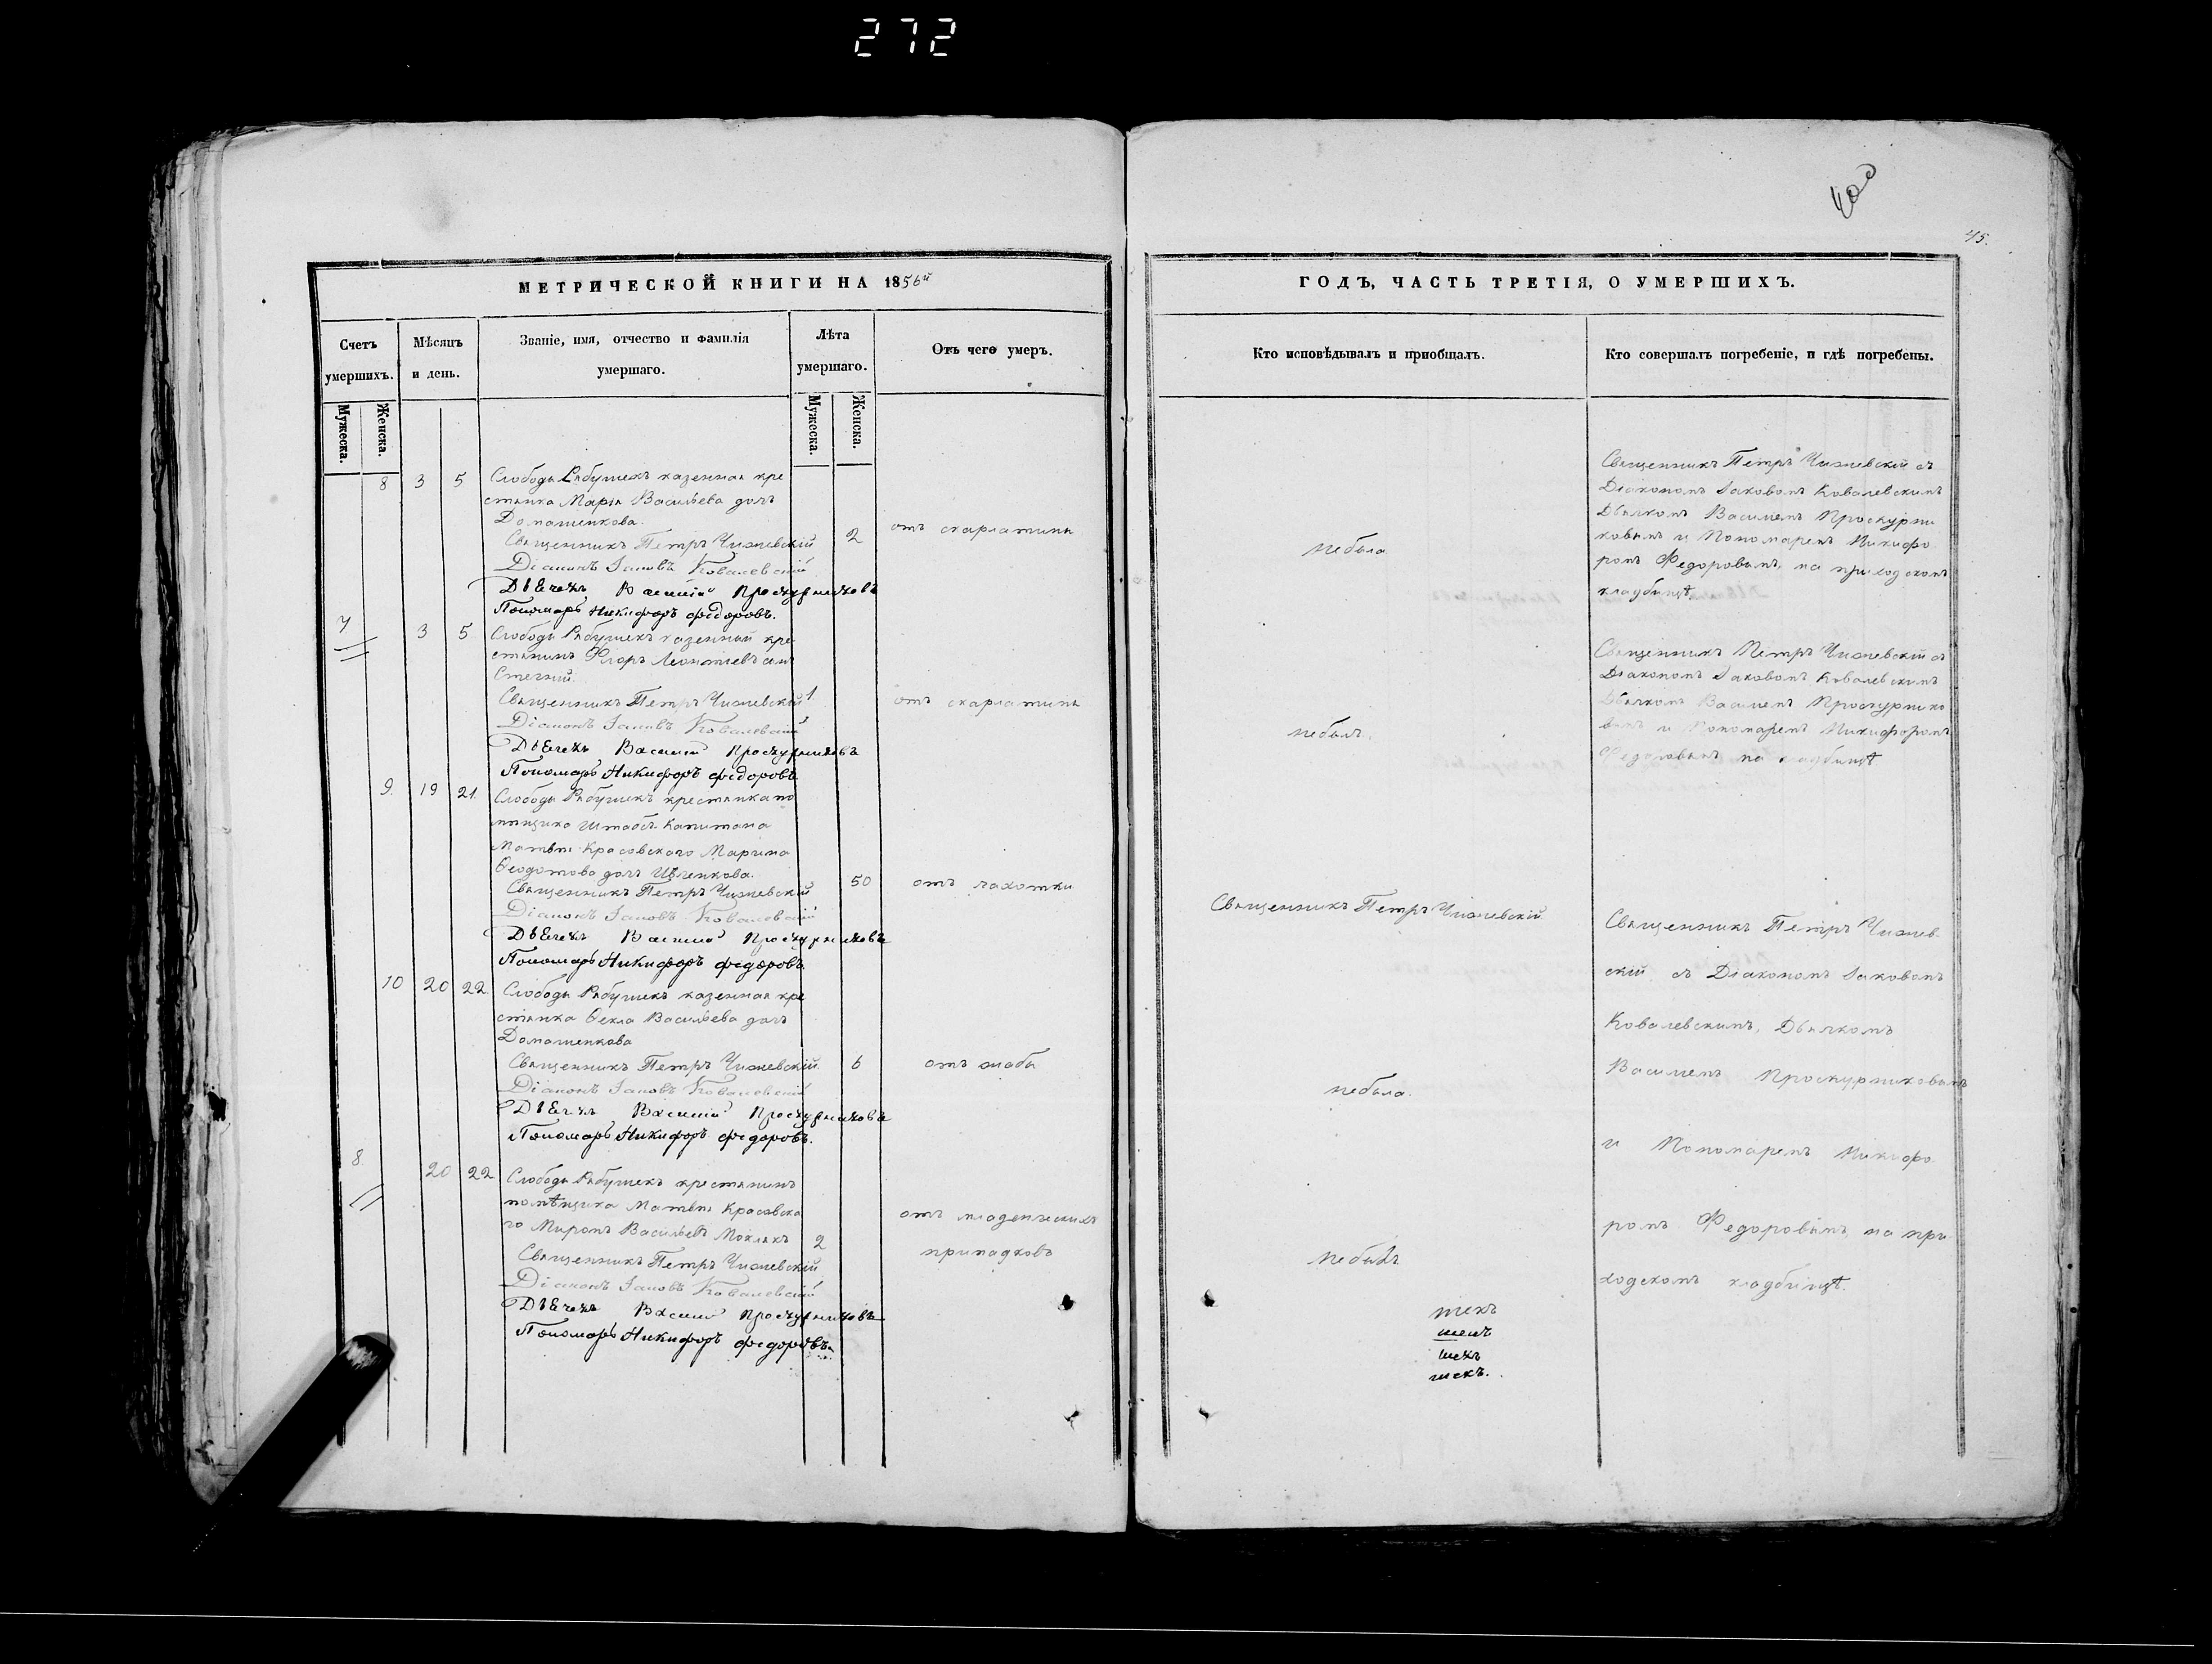 272
400
45.
МЕТРИЧЕСКОЙ КНИГИ НА 1856й
Счетъ умершихъ.
Мужеска.
Женска.
Мѣсяцъ и день.
Званіе, имя, отчество и фамилія умершаго.
Лѣта умершаго.
Мужеска.
Женска.
Отъ чего умеръ.
8 3 5 Слободы Рябушекъ казенная кре
стянка Марія Васильева дочь
Домашенкова.
2 отъ скарлатины
Священникъ Петръ Чижевскій
Діаконъ Іаковъ Ковалевскій
Дьячекъ Василій Проскурниковъ
Пономарь Никифоръ Федоровъ.
7 3 5 Слободы Рябушекъ казенный кре
стянинъ Флоръ Леонтіевъ сынъ
Священникъ Петръ Чижевскій 1 отъ скарлатины
Діаконъ Іаковъ Ковалевскій
Дьячекъ Василій Проскурниковъ
Пономарь Никифоръ Федоровъ
9. 19 21. Слободы Рябушекъ крестянка по
мѣщика Штабсъ Капитана
Матвѣя Красовскаго Марина
Ѳедотова дочь
50 отъ чахотки
Священникъ Петръ Чижевскій
Діаконъ Іаковъ Ковалевскій
Дьячекъ Василій Проскурниковъ
Пономарь Никифоръ Федоровъ.
10 20 22 Слободы Рябушекъ казенная кре
стянка Ѳекла Васильева дочь
Домашенкова
Священникъ Петръ Чижевскій 6 отъ жабы
Діаконъ Іаковъ Ковалевскій
Дьячекъ Василій Проскурниковъ
Пономарь Никифоръ Федоровъ.
8 20 22 Слободы Рябушекъ крестянинъ
помѣщика Матвѣя Красовска
го Миронъ Васильевъ 2
отъ младенческихъ
припадковъ
Священникъ Петръ Чижевскій
Діаконъ Іаковъ Ковалевскій
Дьячекъ Василій Проскурниковъ
Пономарь Никифоръ Федоровъ.
ГОДЪ, ЧАСТЬ ТРЕТІЯ, О УМЕРШИХЪ.
Кто исповѣдывалъ и приобщалъ.
Кто совершалъ погребеніе, и гдѣ погребены.
небыла
Священникъ Петръ Чижевскій съ
Діакономъ Іаковомъ Ковалевскимъ
Дьячкомъ Василіемъ Проскурни
ковымъ и Пономаремъ Никифо
ромъ Федоровымъ, на приходскомъ
кладбищѣ.
небылъ.
Священникъ Петръ Чижевскій съ
Діакономъ Іаковомъ Ковалевскимъ
Дьячкомъ Василіемъ Проскурнико
вымъ и Пономаремъ Никифоромъ
Федоровымъ на кладбищѣ
Священникъ Петръ Чижевскій
небыла.
небылъ
Священникъ Петръ Чижев
скій съ Діакономъ Іаковомъ
Ковалевскимъ, Дьячкомъ
Василіемъ Проскурниковымъ
и Пономаремъ Никифо
ромъ Федоровымъ, на при
ходскомъ кладбищѣ.
шекъ
шекъ
шекъ.